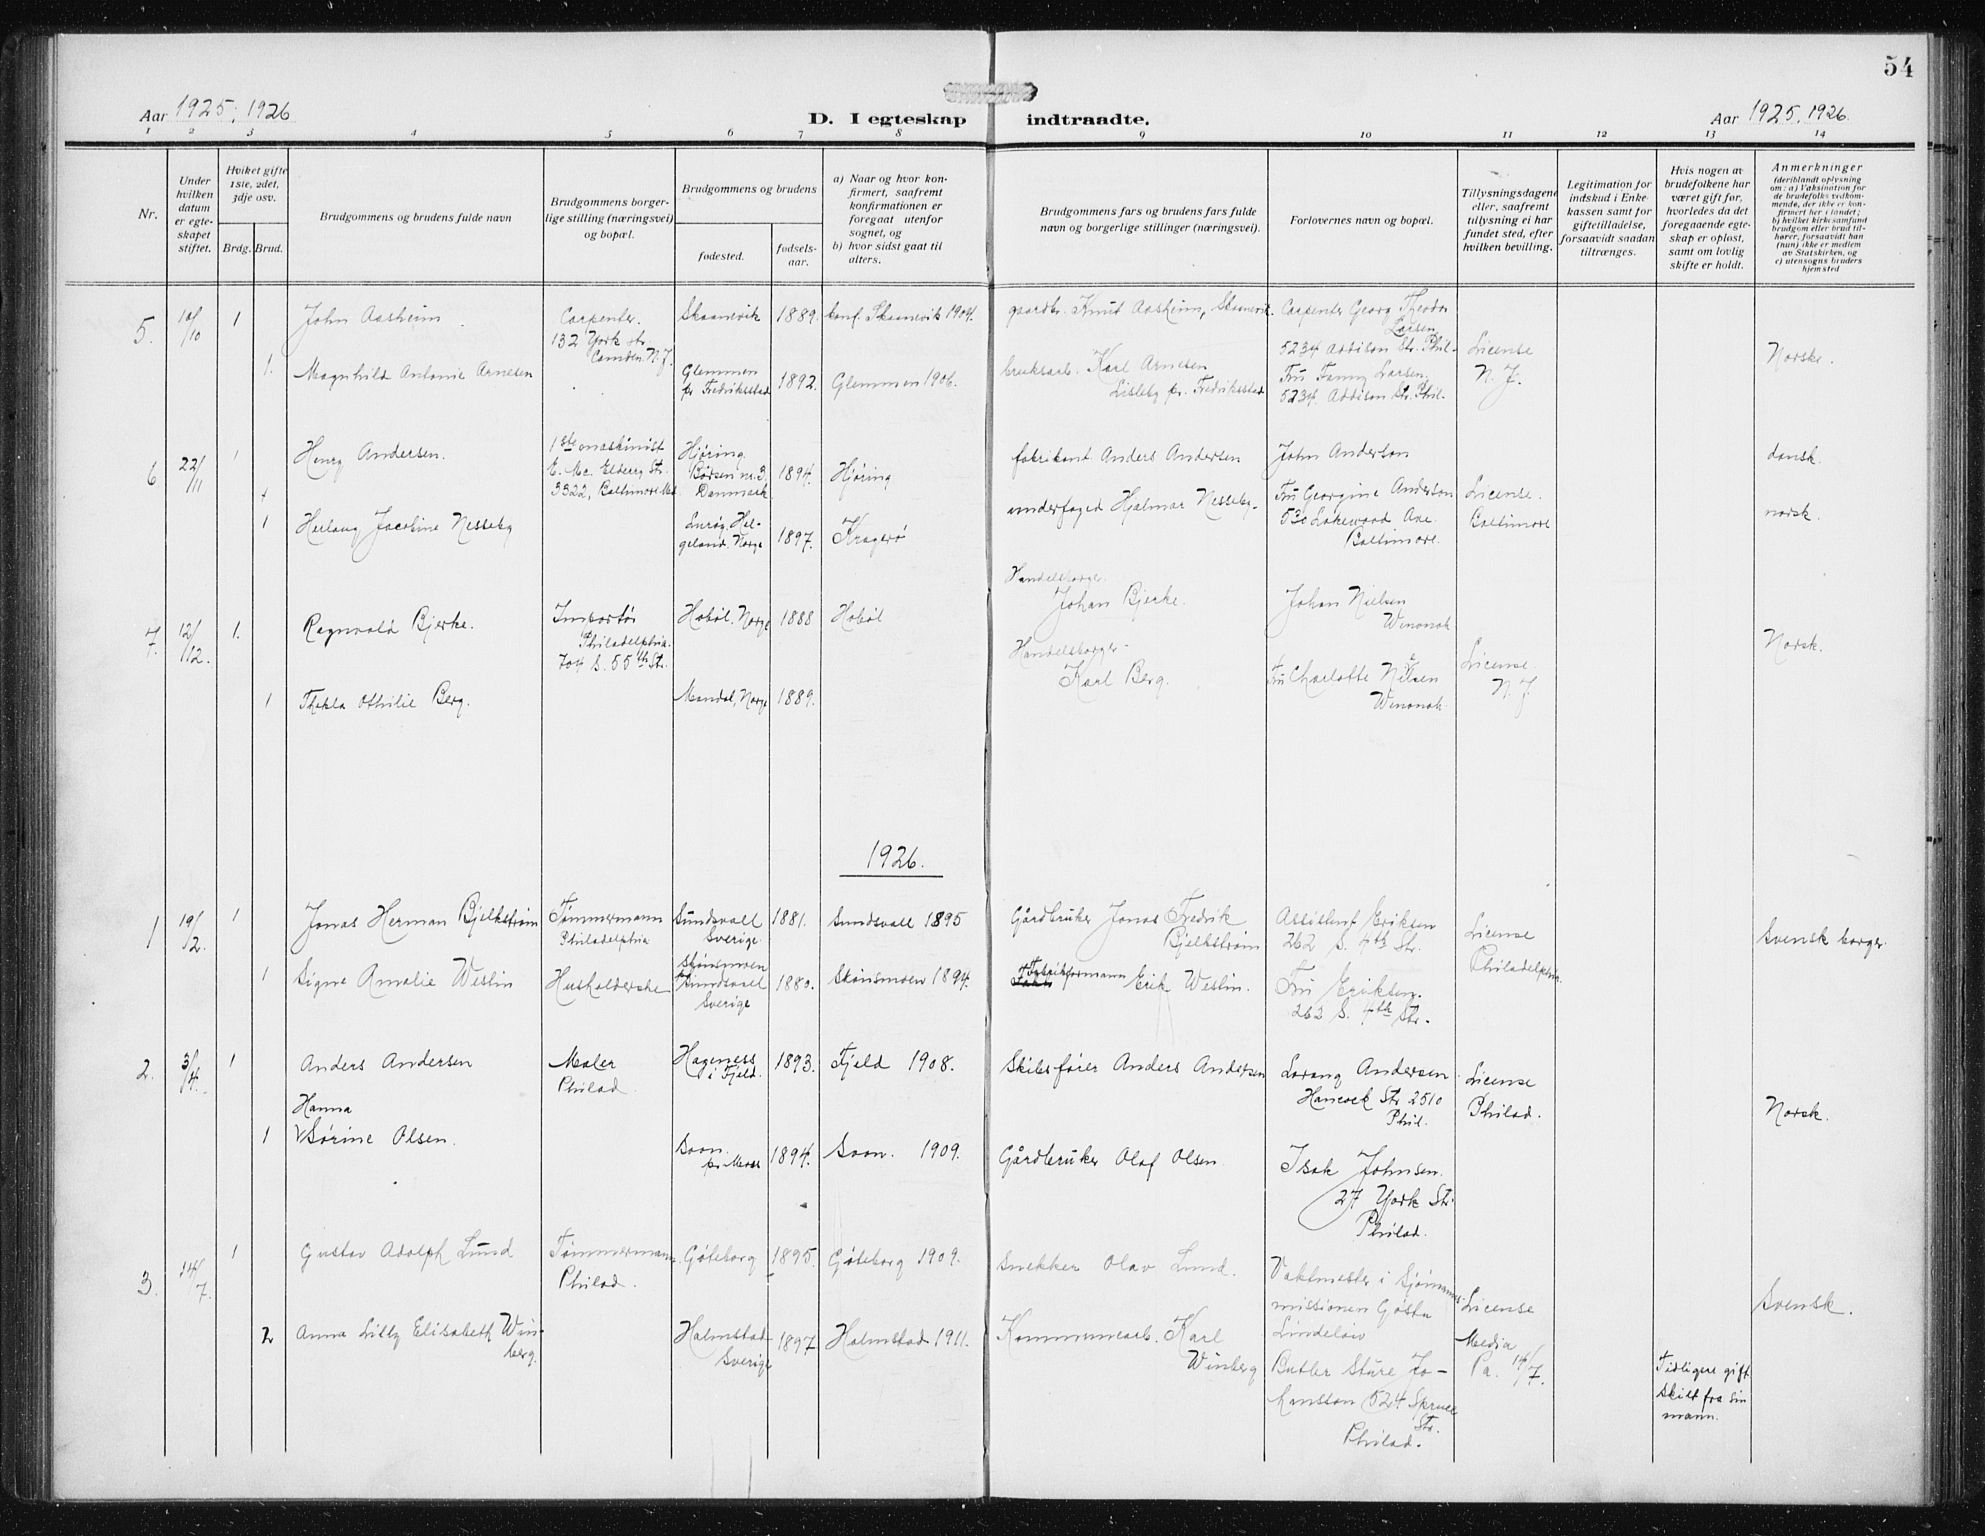 54
Aar 1925, 1926
D. I egteskap indtraadte.
Aar 1925, 1926.
1 2 3 4 5 6 7 8 9 10 11 12 13 14
Nr.
Under
hvilken
datum
er egte-
skapet
stiftet.
Hviket gifte
1ste, 2det,
3dje osv.
Brdg. Brud.
Brudgommens og brudens fulde navn
Brudgommens borger-
lige stilling (næringsvei)
og bopæl.
Brudgommens og brudens
fødested.
fødsels-
aar.
a) Naar og hvor kon-
firmert, saafremt
konfirmationen er
foregaat utenfor
sognet, og
b) hvor sidst gaat til
alters.
Brudgommens fars og brudens fars fulde
navn og borgerlige stillinger (næringsvei).
Forlovernes navn og bopæl.
Tillysningsdagene
eller, saafremt
tillysning ei har
fundet sted, efter
hvilken bevilling.
Legitimation for
indskud i Enke-
kassen samt for
giftetilladelse,
forsaavidt saadan
tiltrænges.
Hvis nogen av
brudefolkene har
været gift før,
hvorledes da det
foregaaende egte-
skap er opløst,
samt om lovlig
skifte er holdt.
Anmerkninger
(deriblandt oplysning
om: a) Vaksination for
de brudefolks vedkom-
mende, der ikke er kon-
firmert her i landet;
b) hvilket kirkesamfund
brudgom eller brud til-
hører, forsaavidt han
(hun) ikke er medlem
av Statskirken, og
c) utensogns bruders
hjemsted
5. 10/10 1 John Aasheim
Carpenter.
132 York str.
Camden. N.J.
Skaanevik 1889. konf. Skaanevik 1904.
gaardbr. Knut Aasheim, Skaanevik
Carpenter Georg Theodor
Larsen
5234 Addison Str. Phil.
License
N. J.
Norske.
1. Magnhild Antonie Arnesen
Glemmen
pr Fredriksstad 1892. Glemmen 1906.
bruksarb. Karl Arnesen
Lisleby pr. Fredriksstad
Fru Fanny Larsen.
5234. Addison Str. Phil.
6 22/11 1 Henry Andersen.
1ste maskinist
E. Mc. Elderry St.
3322, Baltimore Md.
Hjøring
Børsen nr. 3,
Danmark 1894. Hjøring
fabrikant Anders Andersen
John Anderson
dansk.
1 Herlaug Jacobine Nesseby
Lurøy, Hel-
geland, Norge 1897. Kragerø
underfoged Hjalmar Nesseby.
Fru Georgine Anderson
530 Lakewood Ave.
Baltimore.
License.
Baltimore
norsk.
7. 12/12. 1. Ragnvald Bjerke.
Importør
Philadelphia.
704 S. 55th St.
Hobøl, Norge 1888 Hobøl
Handelsborger.
Johan Bjerke.
Johan Nielsen
Wenonah
Norsk.
1 Thekla Othilie Berg.
Mandal, Norge 1889.
Handelsborger.
Karl Berg.
Fru Charlotte Nielsen
Wenonah
License.
N. J.
1926.
1 19/2. 1 Jonas Herman Bjelkstrøm
Tømmermann
Philadelphia
Sundsvall
Sverige. 1881. Sundsvall 1895
Gårdbruker Jonas Fredrik
Bjelkstrøm
Assistent Eriksen
262 S. 4th Str.
License
Philadelphia.
Svensk borger.
1 Signe Amalie Westin
Husholderske
Skönsmoen
Sundsvall
Sverige 1880. Skönsmoen 1894.
Fabrikformann Erik Westin.
Fru Eriksen.
262 S. 4th Str.
2. 3/4. 1 Anders Andersen
Maler
Philad.
Hageness
i Fjeld. 1893. Fjeld 1908.
Skibsfører Anders Andersen
Lorang Andersen
Hancock Str 2510
Phil.
License
Philad.
Norsk.
Hanna
1 Sørine Olsen.
Soon.
pr Moss 1894. Soon. 1909.
Gårdbruker Olaf Olsen.
Isak Johnsen.
27 York Str.
Philad.
3. 14/7. 1 Gustav Adolph Lund
Tømmermann
Philad.
Göteborg 1895. Göteborg 1909.
Snekker Olav Lund.
Vaktmester i Sjömans-
missionen Gösta
Lindelöw
License
Media
Pa. 14/7.
Svensk.
2 Anna Lilly Elisabeth Win-
berg.
Halmstad
Sverige 1897 Halmstad 1911.
Kommunearb. Karl
Winberg
Butler Sture Jo-
hansson 524 Spruce
Str.
Philad.
Tidligere gift
skilt fra sin
mann.